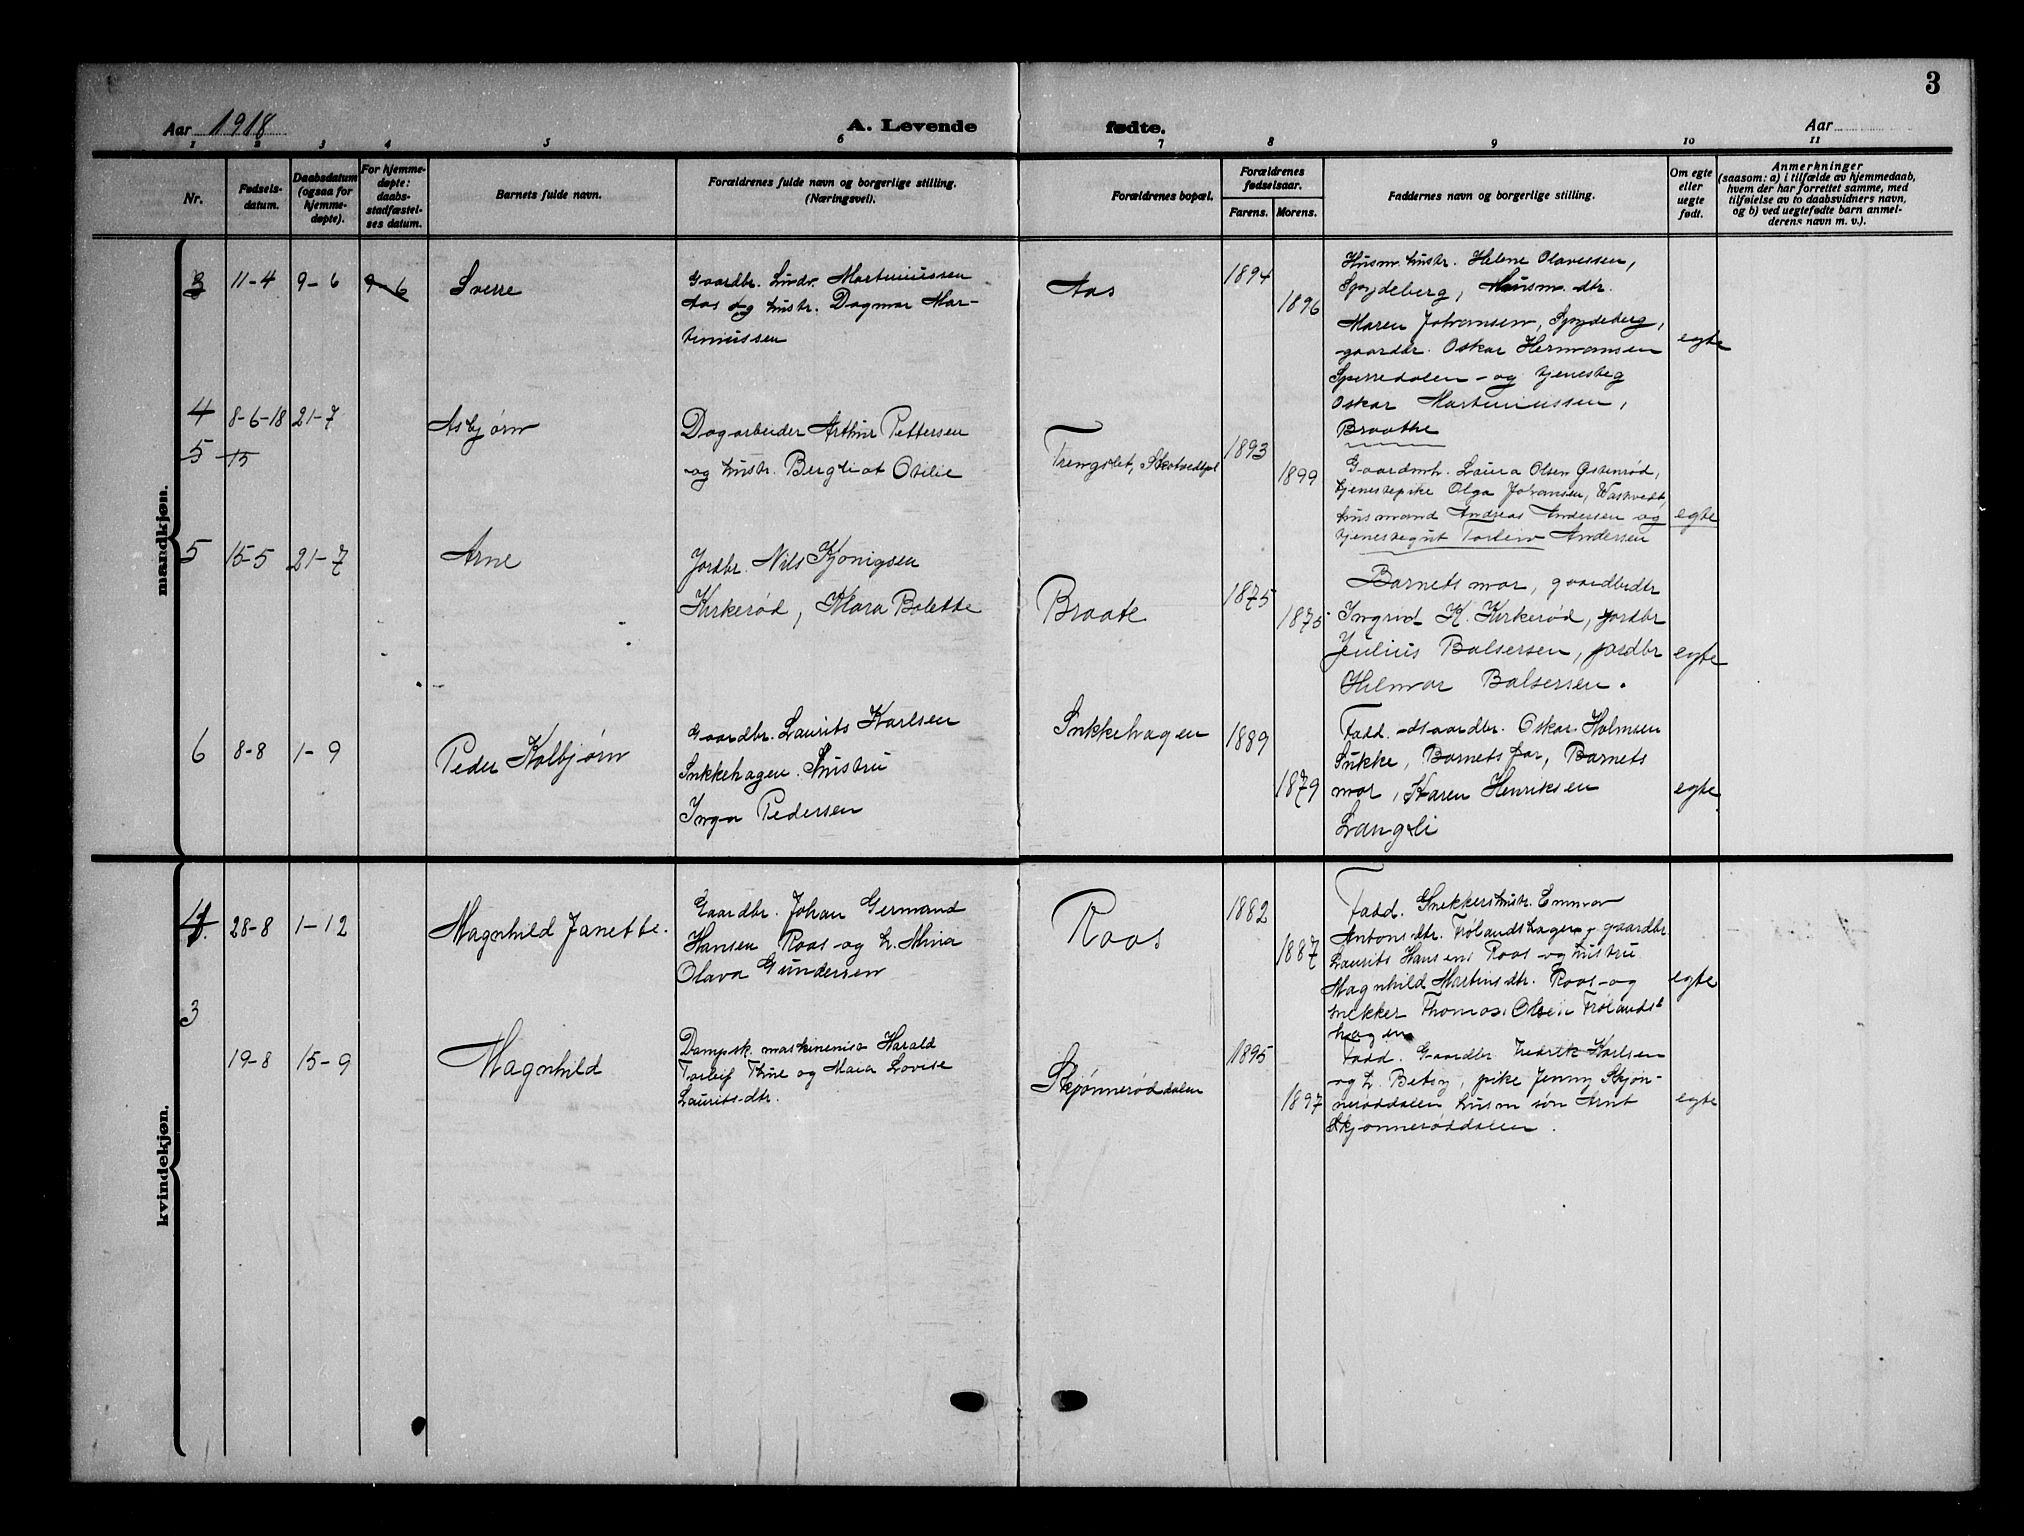 3
Aar 1918
A. Levende
fødte.
Aar
1 2 3 4 5 6 7 8 9 10 11
Nr.
Fødsels-
datum.
Daabsdatum
(ogsaa for
hjemme-
døpte).
For hjemme-
døpte:
daabs-
stadfæstel-
ses datum.
Barnets fulde navn.
Forældrenes fulde navn og borgerlige stilling.
(Næringsvei).
Forældrenes bopæl.
Forældrenes
fødselsaar.
Farens. Morens.
Faddernes navn og borgerlige stilling.
Om egte
eller
uegte
født.
Anmerkninger
(saasom: a) i tilfælde av hjemmedaab,
hvem der har forrettet samme, med
tilføielse av to daabsvidners navn,
og b) ved uegtefødte barn anmel-
derens navn m. v.).
mandkjøn.
3 11-4 9-6 9-6 Sverre
Gaardbr. Ludv. Martiniussen
Aas og hustr. Dagmar Mar-
tiniussen
Aas
1894
1896
Husm. hustr. Helene Olavessen,
Spydeberg, Husm. dtr.
Maren Johansen, Spydeberg,
gaardbr. Oskar Hermansen
Sperredalen - og tjenesteg
Oskar Martiniussen,
Braathe
egte
4 8-6-18 21-7 Asbjørn
5 15
Dagarbeider Arthur Pettersen
og hustr. Bergliot Otilie
Trengslet, Skotvedtpl
1893
1899
Gaardmh. Laura Olsen Østenrød,
tjenestepike Olga Johansen, Vaskvedt
husmand Andreas Andersen og
tjenestegut Torleiv Andersen
egte
5 15-5 21-7 Arne
Jordbr. Nils Kjonigsen
Kirkerød, Mara Bolette
Braate
1875
1875
Barnets mor, gaardbrdtr
Ingrid K. Kirkerød, jordbr
Julius Balsersen, jordbr
Hilmar Balsersen.
egte
6 8-8 1-9 Peder Kolbjørn
Gaardbr. Laurits Karlsen
Sukkehagen. Hustru
Inga Pedersen
Sukkehagen
1889
1879
Fadd. Gaardbr. Oskar Holmsen
Sukke, Barnets far, Barnets
mor, Karen Henriksen
Langli
egte
kvindekjøn.
4. 28-8 1-12 Magnhild Janette.
Gaardbr. Johan Germand
Hansen Roos og h. Mina
Olava Gundersen
Roos
1882
1887
Fadd. Snekkershustr. Emma
Antonsdtr. Frølandshagen, gaardbr
Laurits Hansen Roos og hustru
Magnhild Martinsdtr. Roos og
snekker Thomas Olsen Frølands-
hagen
egte
3
19-8 15-9 Magnhild
Dampsk. maskinenist Harald
Torleif Thue og Maia Lovise
Lauritsdtr.
Skjønnerøddalen
1895
1897
Fadd. Gaardbr. Fredrik Karlsen
og h. Betsy, pike Jenny Skjøn-
nerøddalen husm søn Arnt
Skjønnerøddalen.
egte